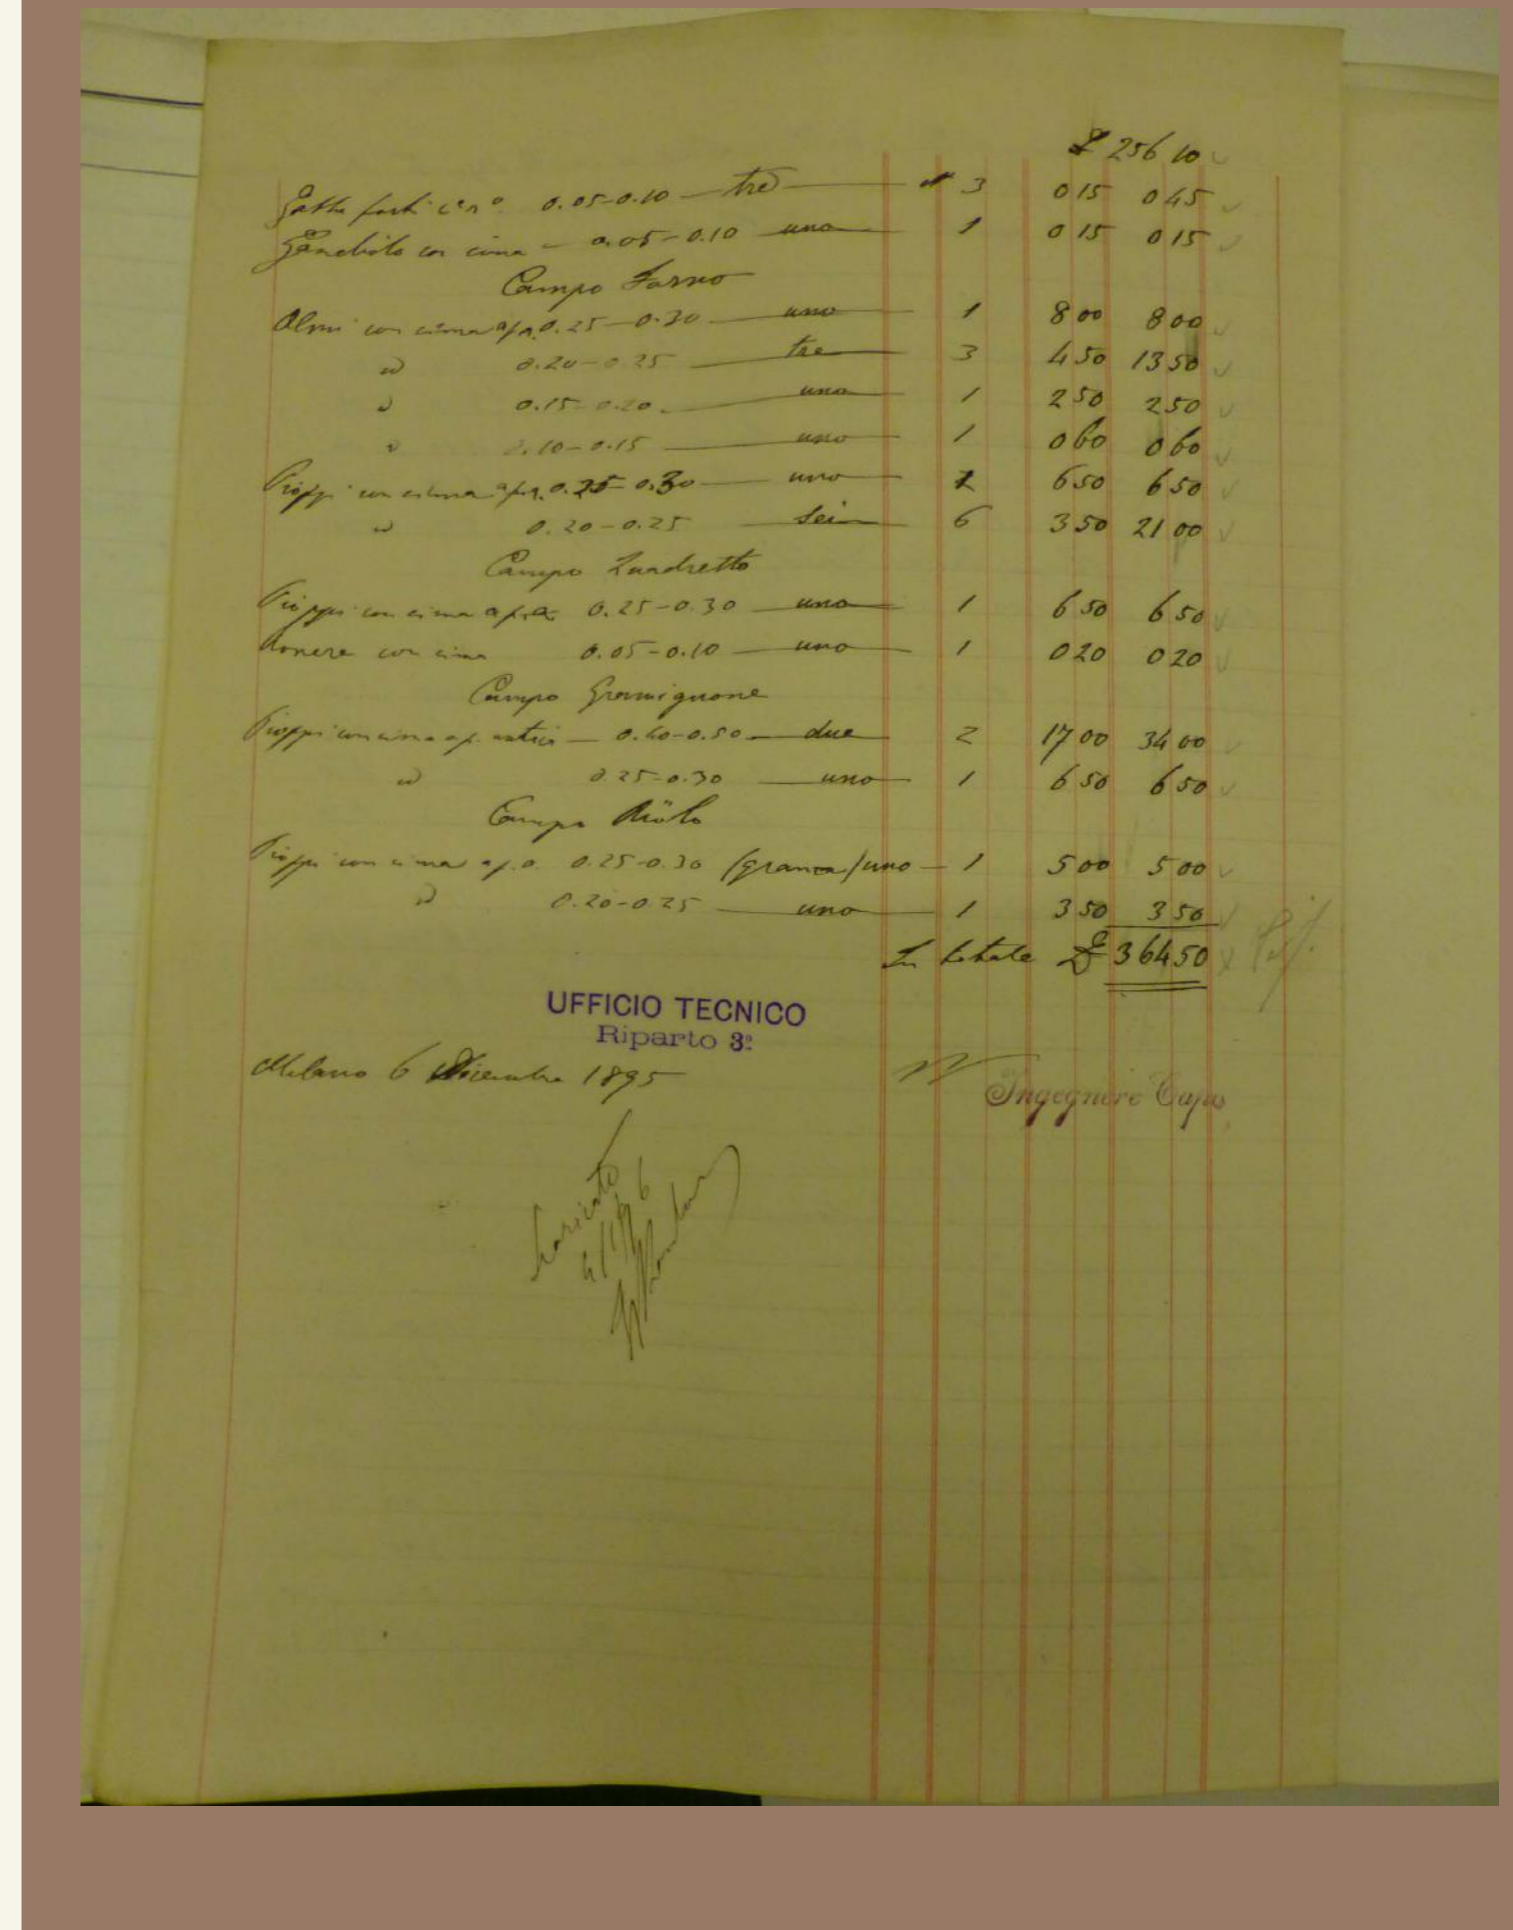 £ 256 10
0.05-0.10 — tre — 3 0 15 0 45
con cima — 0.05-0.10 uno 1 0 15 0 15
Campo
Olmi con cima 0.25-0.30 uno 1 8 00 8 00
" 0.20-0.25 tre 3 4 50 13 50
" 0.15-0.20 uno 1 2 50 2 50
" 0.10-0.15 uno 1 0 60 0 60
Pioppi con cima 0.25-0.30 uno 1 6 50 6 50
" 0.20-0.25 sei 6 3 50 21 00
Campo
Pioppi con cima 0.25-0.30 uno 1 6 50 6 50
con cima 0.05-0.10 uno 1 0 20 0 20
Campo Gramignone
Pioppi con cima 0.40-0.50 due 2 17 00 34 00
" 0.25-0.30 uno 1 6 50 6 50
Campo
Pioppi con cima 0.25-0.30 uno 1 5 00 5 00
" 0.20-0.25 uno 1 3 50 3 50
In totale £ 364 50
UFFICIO TECNICO
Riparto 3º
Milano 6 Dicembre 1895
Ingegnere Capo